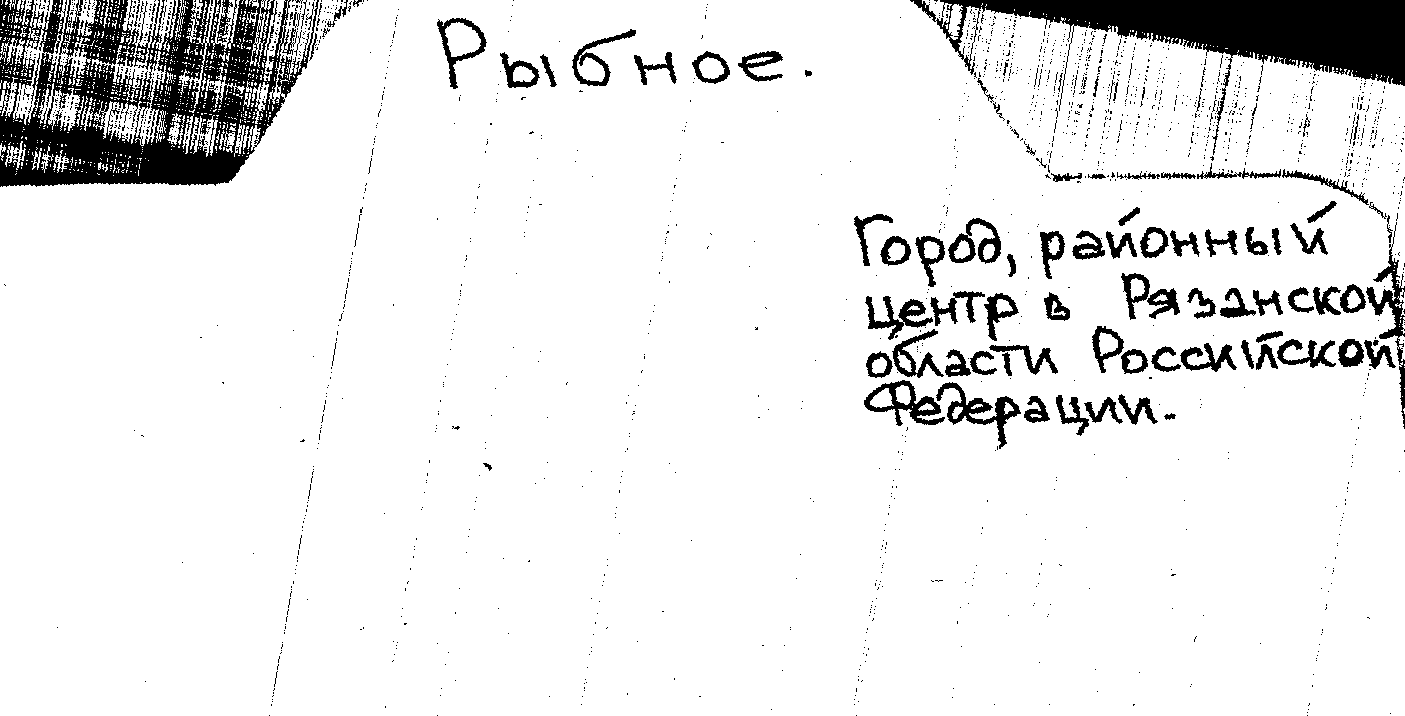 Рыбное.
Город, районный
центр в Рязанской
области Российской
Федерации.